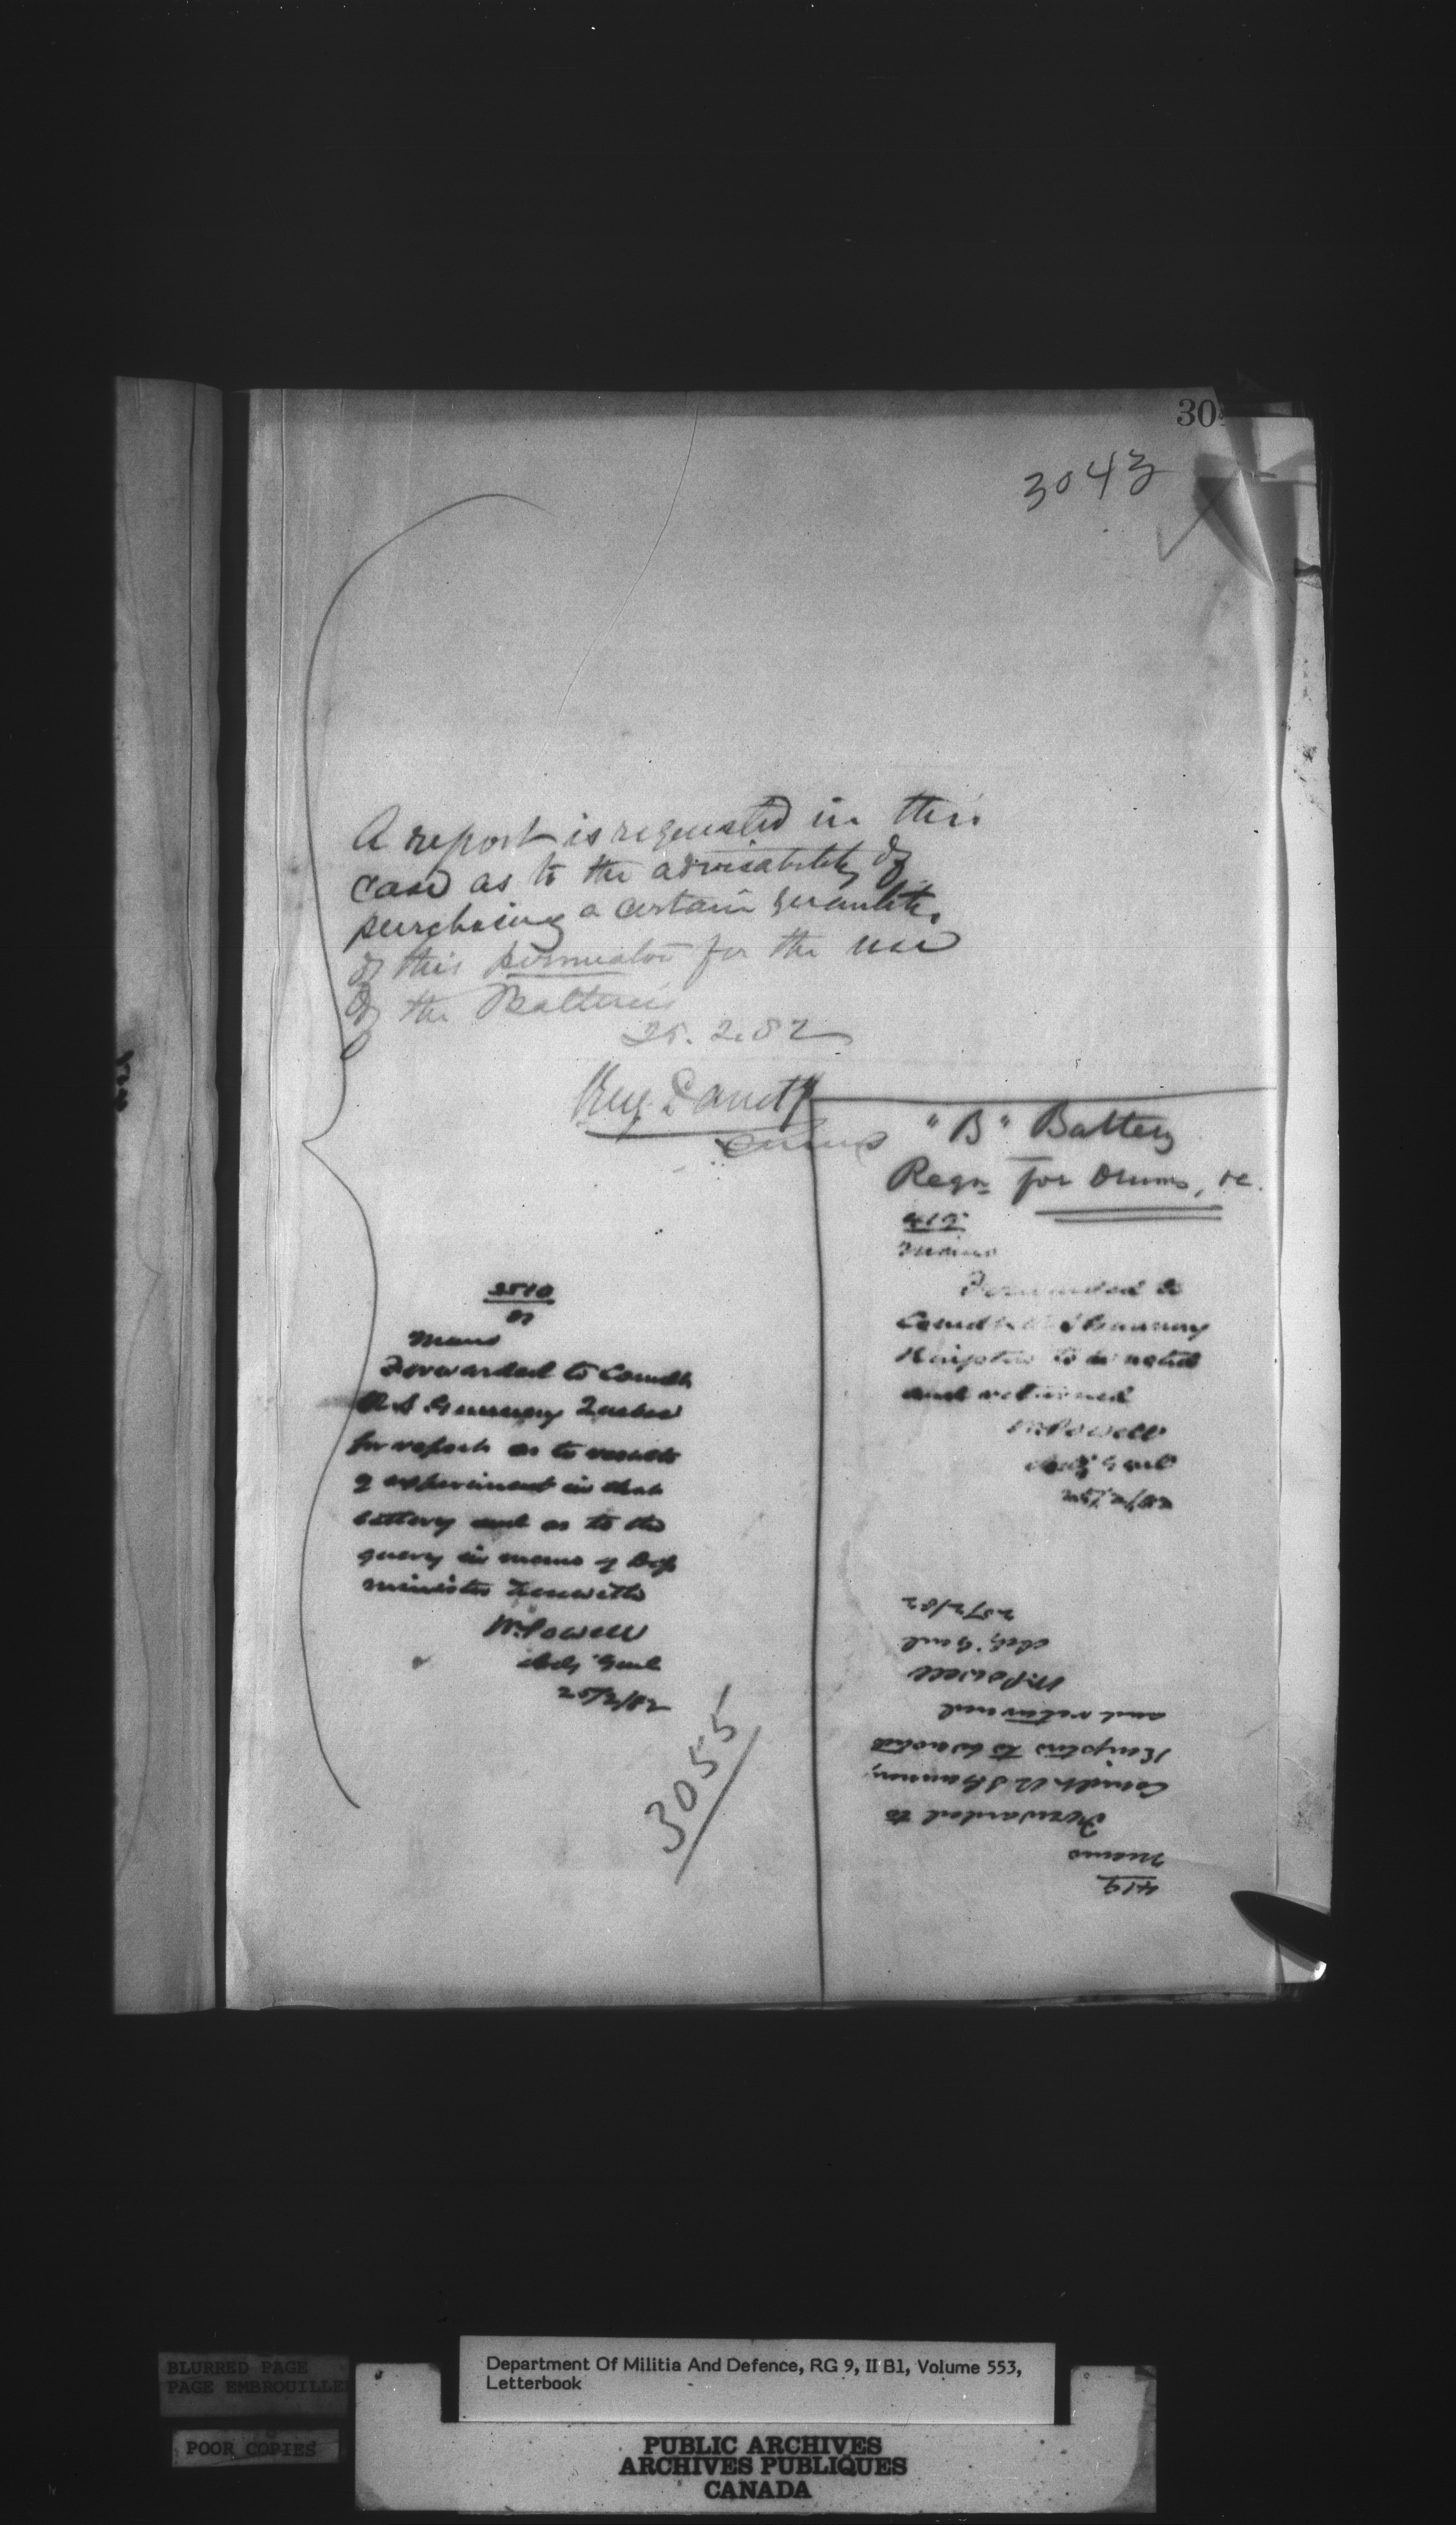 30
3043
A report is requested in this
case as to the advisability of
purchasing a certain quantity
of this for the use
of the Batteries
25.2.82
3510
Memo
Forwarded to Comdt
R S Gunnery Quebec
for report as to results
of experiment in that
battery and as to the
query in memo of Dep
minister herewith
W. Powell
Adj Genl
25/2/82
3055
"B" Battery
Reqn for Drums, &c.
419
Memo
Forwarded to
Comdt R S Gunnery
Kingston to be noted
and returned
W. Powell
Adj Genl
25/2/82
419
Memo
Forwarded to
Comdt R S Gunnery
Kingston to be noted
and returned
W. Powell
Adj Genl
25/2/82
BLURRED PAGE
PAGE EMBROUILLE
POOR COPIES
Department Of Militia And Defence, RG 9, II B1, Volume 553,
Letterbook
PUBLIC ARCHIVES
ARCHIVES PUBLIQUES
CANADA